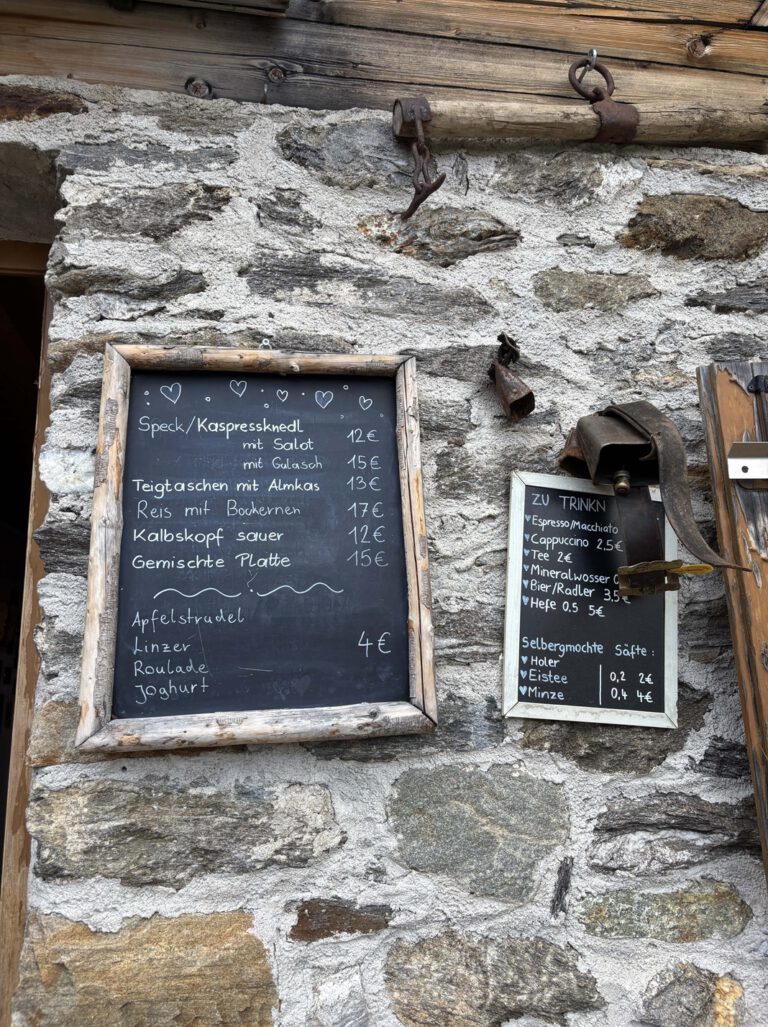 Speck/Kaspressknedl
mit Salot 12€
mit Gulasch 15€
Teigtaschen mit Almkas 13€
Reis mit Bockernen 17€
Kalbskopf sauer 12€
Gemischte Platte 15€
Apfelstrudel
Linzer 4€
Roulade
Joghurt
ZU TRINKN
Espresso/Macchiato
Cappuccino 2,5€
Tee 2€
Mineralwosser
Bier/Radler 3,5€
Hefe 0.5 5€
Selbergmochte Säfte:
Holer
Eistee 0,2 2€
Minze 0,4 4€